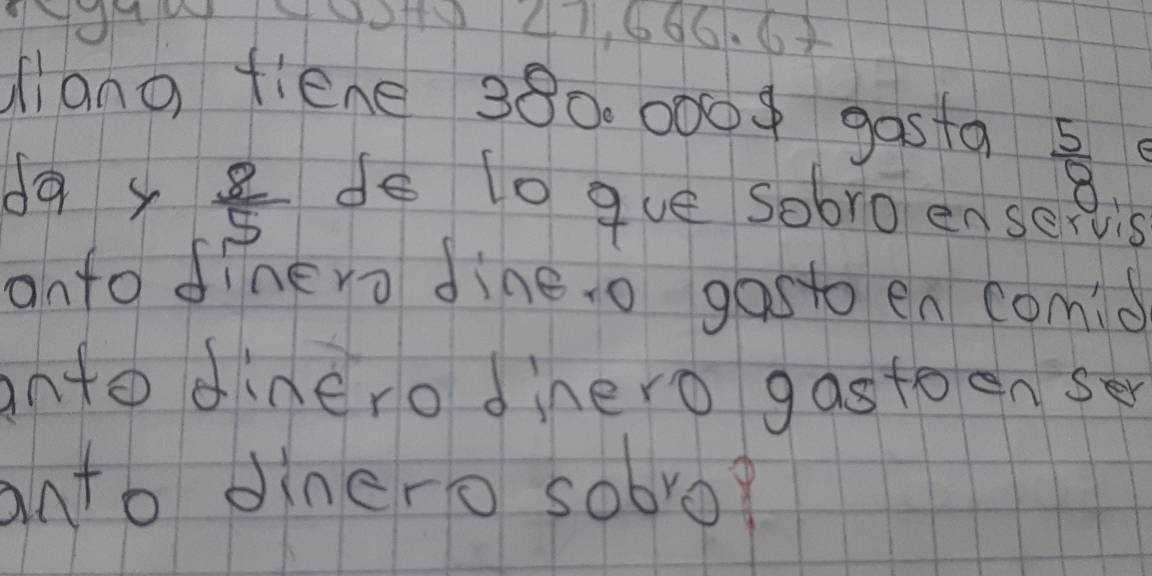 27,666.67
diana tiene 380.000$ gasta 5/8 e
da y 2/5 de lo que sobro en servis
anto dinero dinero gasto en comid
anto dinero dinero gasto en ser
anto dinero sobro?